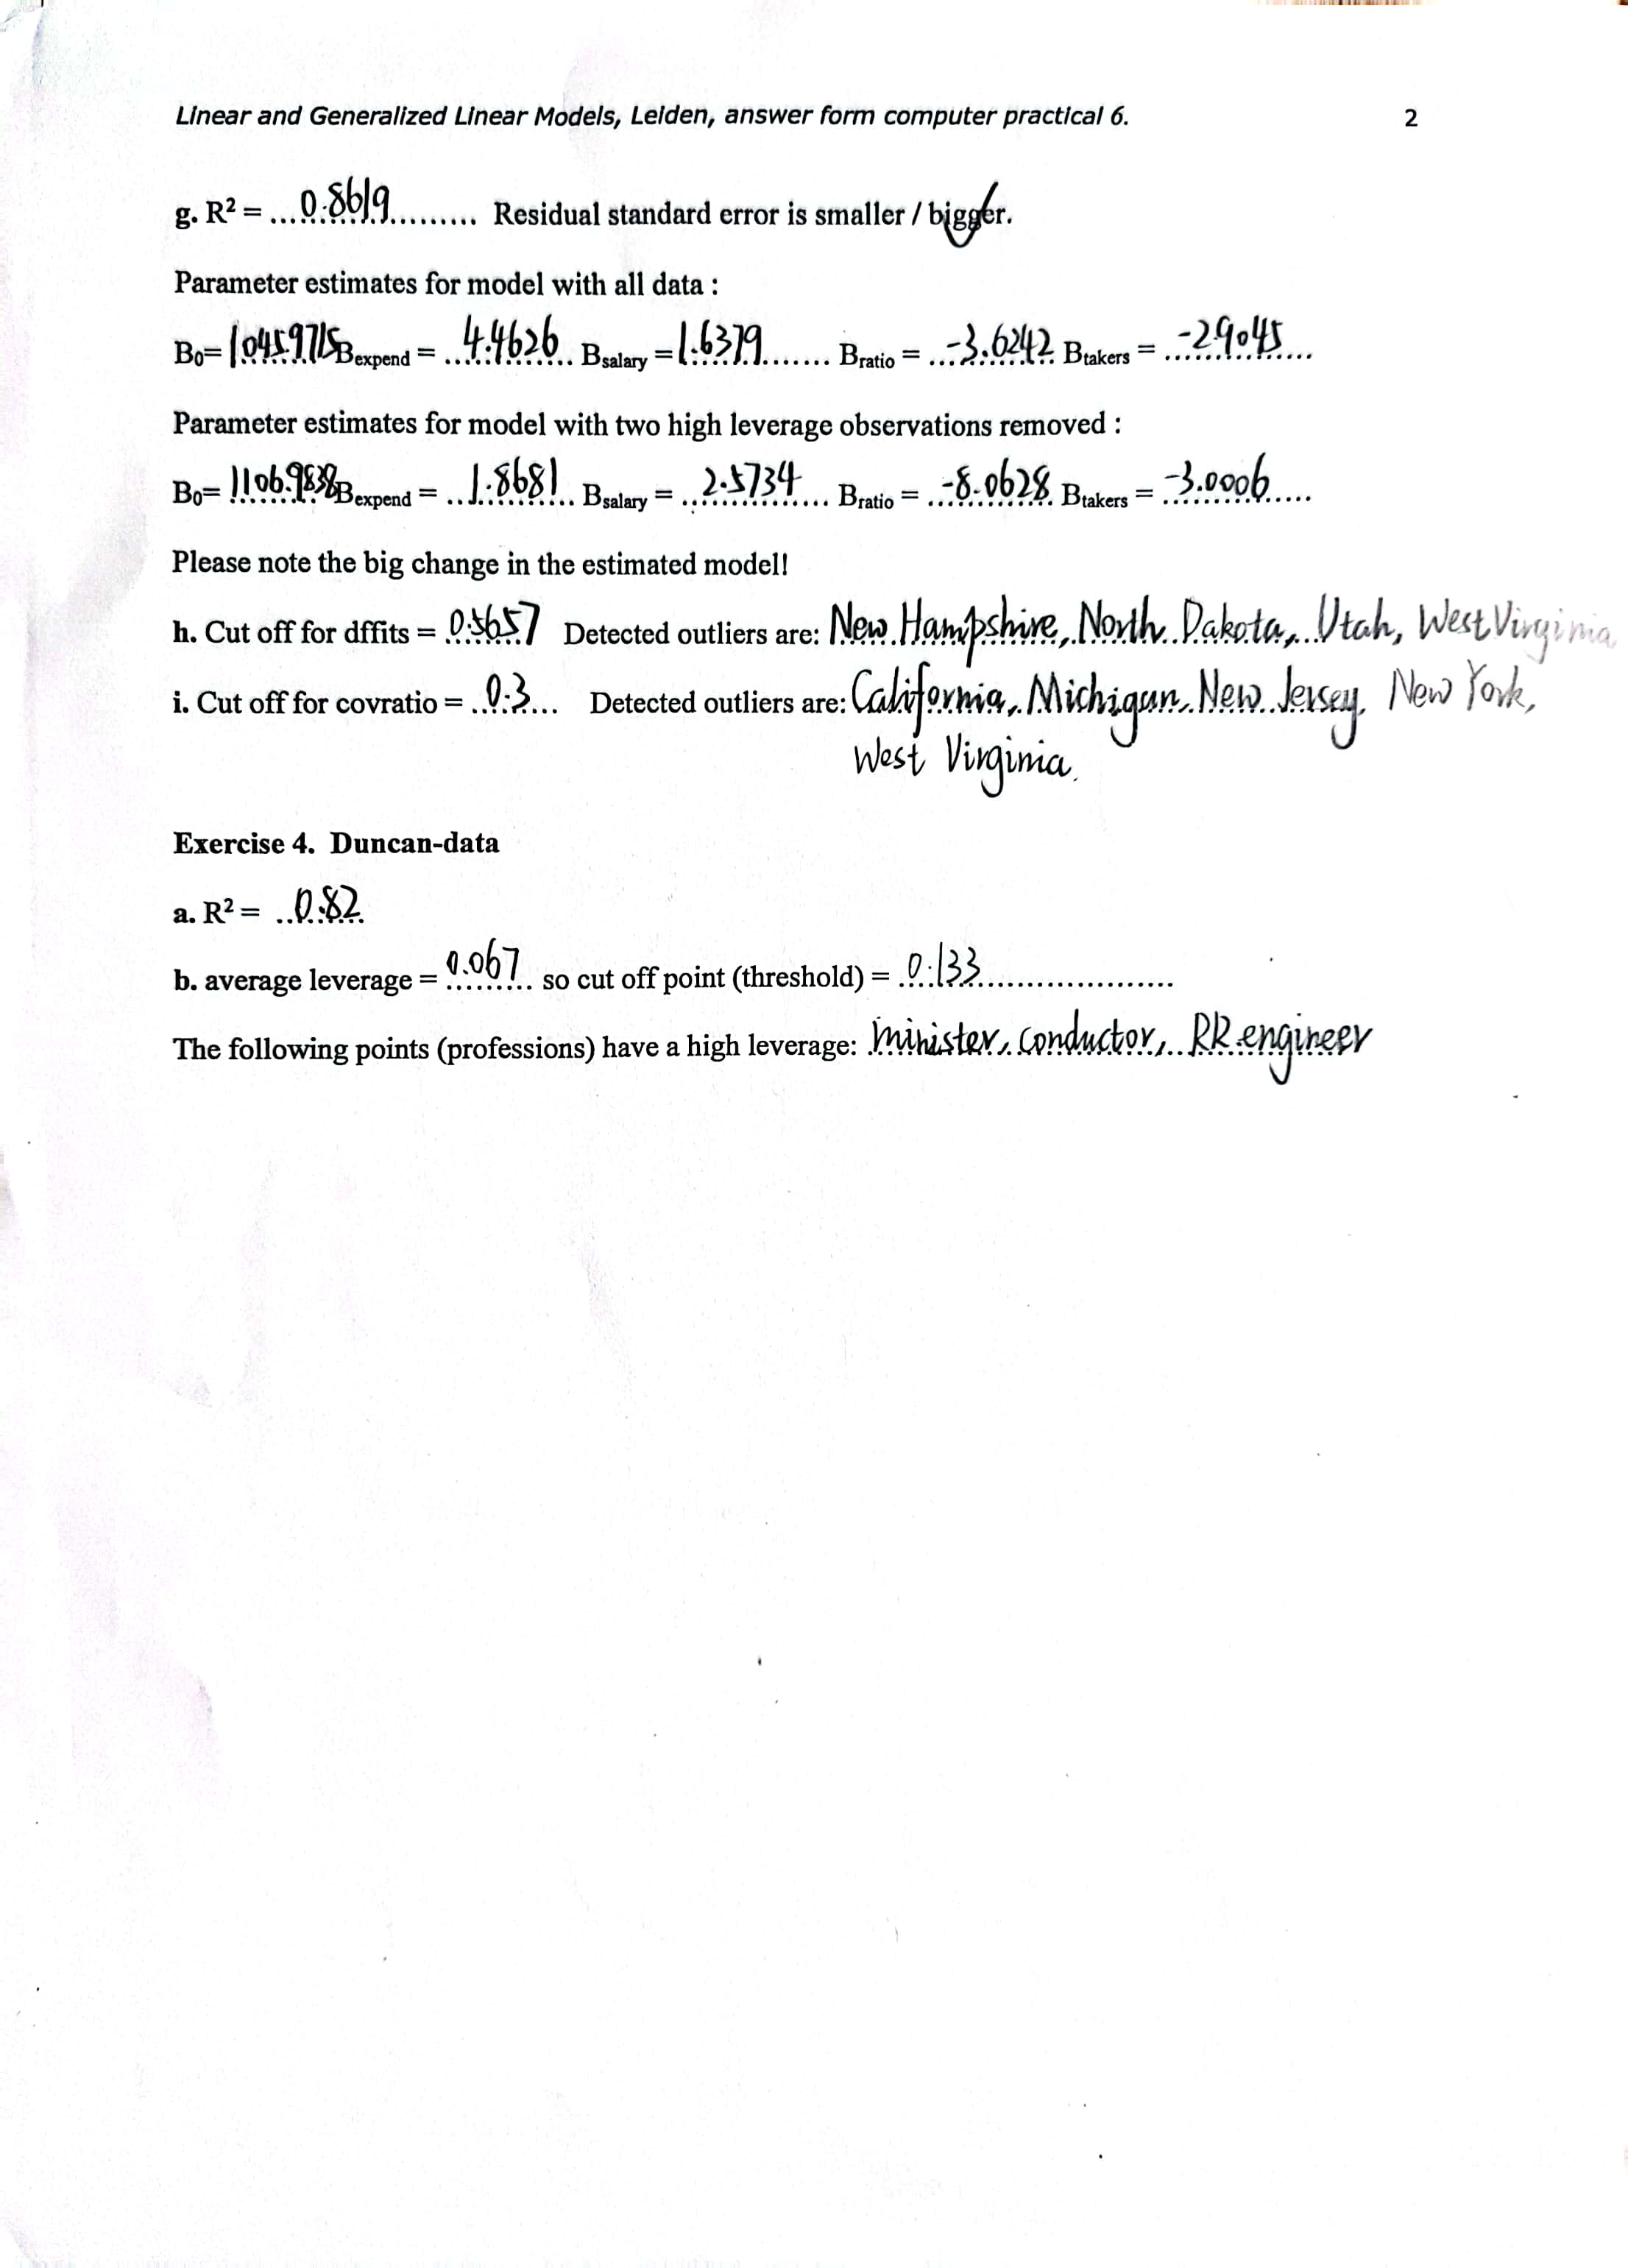 Linear and Generalized Linear Models, Leiden, answer form computer practical 6. 2
g. R² = ...0.8619......... Residual standard error is smaller / bigger.
Parameter estimates for model with all data :
B₀= 1045.9715 Bexpend = ..4.4626.. Bsalary = 1.6379....... Bratio = ..-3.6242. Btakers = ..-2.9045....
Parameter estimates for model with two high leverage observations removed :
B₀= 1106.9838 Bexpend = ..1.8681.. Bsalary = ..2.5734... Bratio = ..-8.0628. Btakers = -3.0006.....
Please note the big change in the estimated model!
h. Cut off for dffits = 0.5657 Detected outliers are: New Hampshire, North Dakota, Utah, West Virginia
i. Cut off for covratio = ..0.3... Detected outliers are: California, Michigan, New Jersey, New York,
West Virginia.
Exercise 4. Duncan-data
a. R² = ..0.82.
b. average leverage = 0.067 so cut off point (threshold) = 0.133......................
The following points (professions) have a high leverage: minister, conductor, RR.engineer